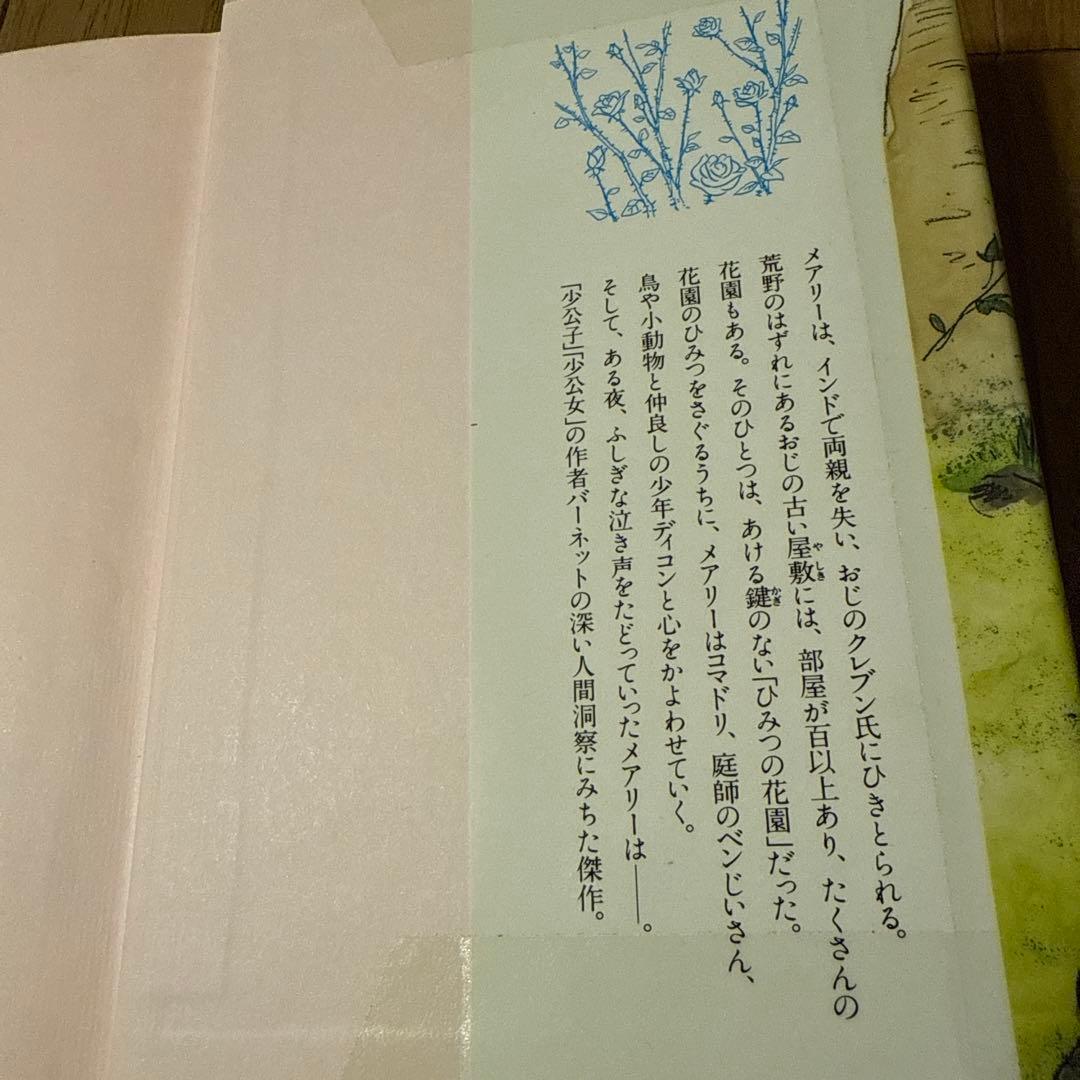 メアリーは、インドで両親を失い、おじのクレブン氏にひきとられる。
荒野のはずれにあるおじの古い屋敷には、部屋が百以上あり、たくさんの
花園もある。そのひとつは、あける鍵のない「ひみつの花園」だった。
花園のひみつをさぐるうちに、メアリーはコマドリ、庭師のベンじいさん、
鳥や小動物と仲良しの少年ディコンと心をかよわせていく。
そして、ある夜、ふしぎな泣き声をたどっていったメアリーは――。
「少公子」「少公女」の作者バーネットの深い人間洞察にみちた傑作。